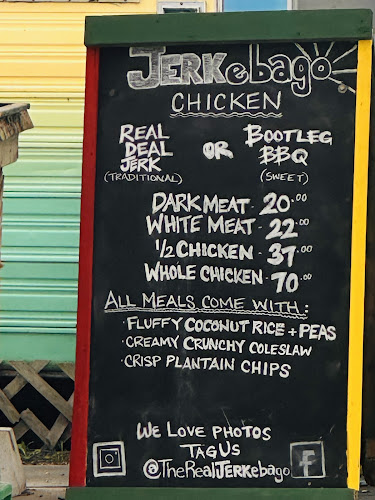 JERKebago
CHICKEN
REAL DEAL JERK (TRADITIONAL)
OR
BOOTLEG BBQ (SWEET)
DARK MEAT - 20.00
WHITE MEAT - 22.00
1/2 CHICKEN - 37.00
WHOLE CHICKEN - 70.00
ALL MEALS COME WITH:
· FLUFFY COCONUT RICE + PEAS
· CREAMY CRUNCHY COLESLAW
· CRISP PLANTAIN CHIPS
WE LOVE PHOTOS
TAG US
@TheRealJERKebago
f